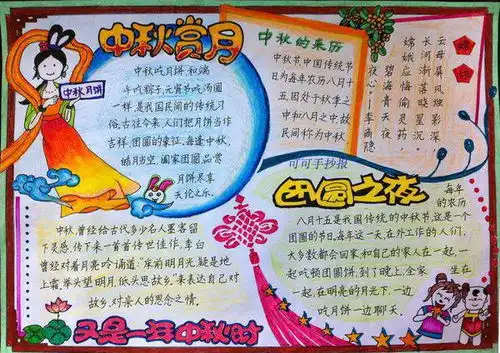 中秋赏月
中秋月饼
中秋吃月饼和端
午吃粽子,元宵节吃汤圆
一样是我国民间的传统习
俗,古往今来,人们把月饼当作
吉祥,团圆的象征,每逢中秋,
皓月当空,阖家团圆品赏
月饼尽享
天伦之乐.
中秋的来历
中秋节中国传统节
日为每年农历八月十
五,因处于秋季之
中和八月之中故
民间称为中秋
嫦娥
云母屏风烛影深
长河渐落晓星沉
嫦娥应悔偷灵药
碧海青天夜
夜心—李商
隐
可可手抄报
团圆之夜
每年
的农历
八月十五是我国传统的中秋节,这是一个
团圆的节日,每年这一天,在外工作的人们,
大多数都会回家,和自己的家人在一起,一
起吃顿团圆饼,到了晚上,全家坐在
一起,在明亮的月光下,一边
吃月饼一边聊天.
中秋,曾经给古代多少名人墨客留
下灵感,传下来一首首传世佳作,李白
曾经对着月亮吟诵道:"床前明月光,疑是地
上霜,举头望明月,低头思故乡,"来表达自己对
故乡,对亲人的思念之情.
又是一年中秋时